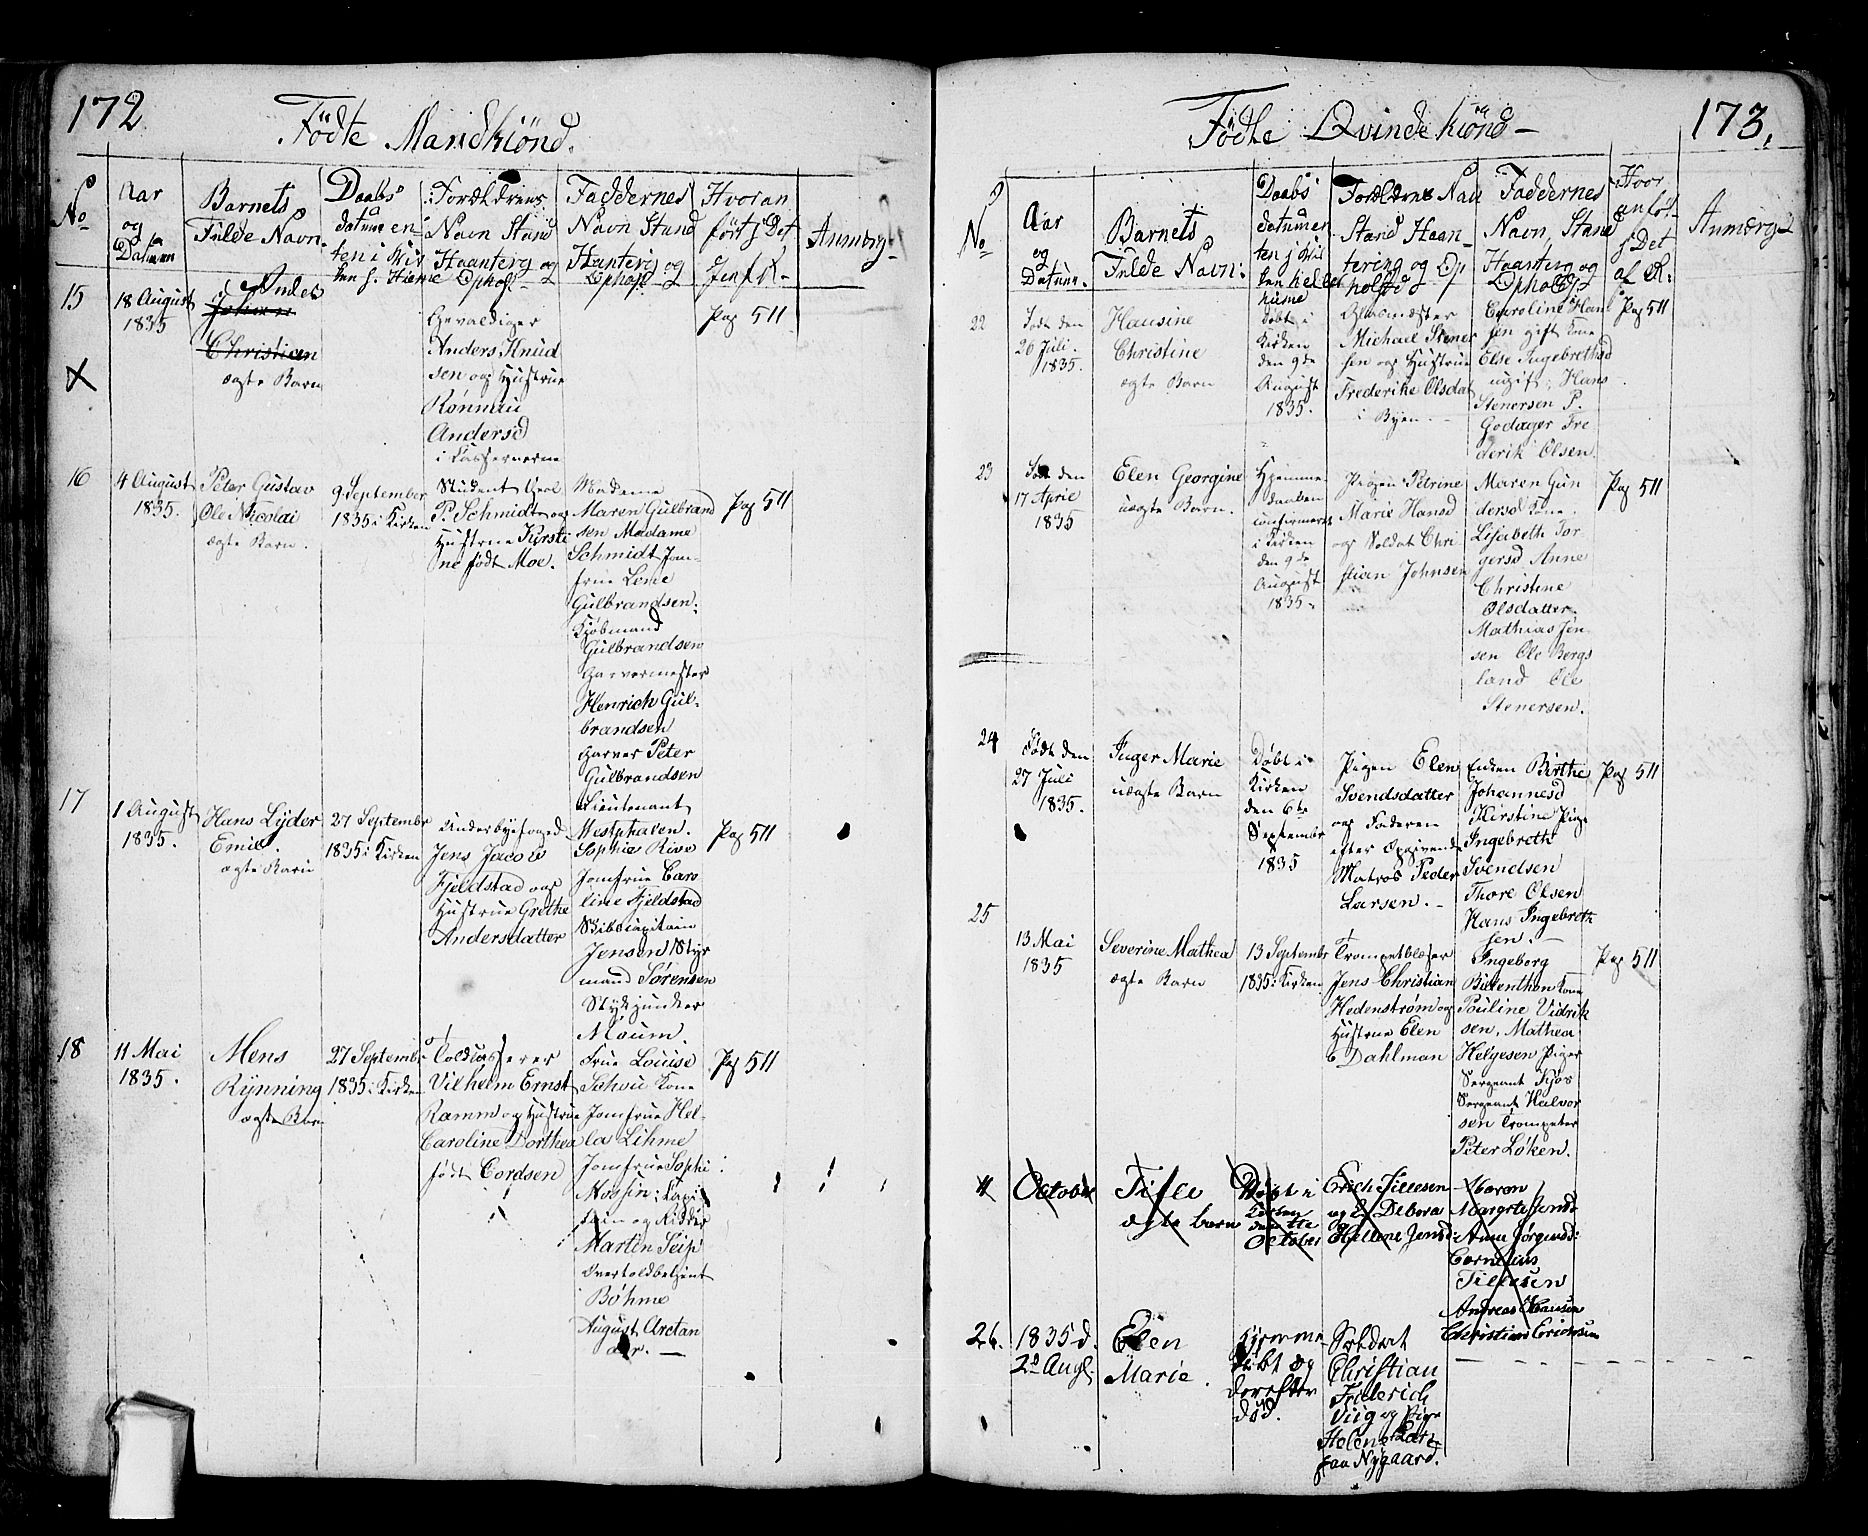 172
Födte Mandkiönd.
No
Aar
og
Datum
Barnets
Fulde Navn.
Daabs
datum en
ten i Kir
ken h. Hieme
Forældrens
Navn Stand
Haantering og
Ophold
Faddernes
Navn Stand
Hantering og
Ophold
Hvor an
ført j Det
Jenf. R.
Anmerg.
15
18 August
1835
Andes
Johan
Christian
ægte Barn
Gevaldiger
Anders Knud
sen og Hustrue
Rönnau
Andersd
i Kassernerne
Pag 511
16
4 August
1835.
Peter Gustav
Ole Nicolai
ægte Barn.
9 September
1835 i Kirken
Student Carl
P. Schmidt og
Hustrue Kirsti
ne født Moe.
Madame
Maren Gulbrand
sen Madame
Schmidt Jom
frue Lene
Gulbrandsen.
Kjøbmand
Gulbrandsen
Garvermester
Henrich Gul-
brandsen
Garver Peter
Gulbrandsen
Pag 511
17
1 August
1835.
Hans Lyder
Emil.
ægte Barn
27 Septembr
1835 i Kirken
Underbyefoged
Jens Jacob
Fjeldstad og
Hustrue Grethe
Andersdatter
Lieutenant
Westphaven.
Sophie Rive
Jomfrue Caro
line Fjeldstad
Skibscapitain
Jensen Styr
mand Sørensen
Stykjunker
Moum.
Pag 511
18
11 Mai
1835.
Mens
Rynning
ægte Barn
27 Septembr
1835 i Kirken
Toldkasserer
Vilhelm Ernst
Ramm og Hustrue
Caroline Dorthea
født Cordsen
Frue Louise
Schou Kone
Jomfrue Hel-
la Lihme
Jomfrue Sophi
Mossin: Capi
tain og Ridder
Martin Seip
Overtoldbetjent
Böhme
August Arctan
der. —
Pag 511
Födte Qvindekiönd —
173.
No
Aar
og
Datum.
Barnets
Fulde Navn.
Daabs
datum en
ten j Kir
ken heller
hieme
Forældrene Nav
Stand Haan-
tering og Op
hold
Faddernes
Navn, Stand
Haantering og
Ophold
Hvor
anfør
j Det
af R.
Anmærg
22
Født den
26 Juli.
1835.
Hansine
Christine
ægte Barn
Døbt i
Kirken
den 9de
August
1835.
Glasmester
Michael Stener
sen og Hustrue
Frederike Olsdat
i Byen.
Caroline Han
sen gift Kone
Else Ingebrethsd
ugift, Hans
Stenersen P.
Godager Fre
derik Olsen.
Pag 511
23
Født den
17 April
1835
Elen Georgine
uægte Barn.
Hjemme
daaben
confirmeret
i Kirken
den 9de
August
1835.
Pigen Petrine
Marie Hansd
og Soldat Chri
stian Johnsen
Maren Gun
dersd Kone.
Lisabeth Tor
gersd Anne
Christine
Olsdatter.
Mathias Jen
sen Ole Bergs
land Ole
Stenersen.
Pag 511
24
Født den
27 Juli
1835.
Inger Marie
uægte Barn
Døbt i
Kirken
den 6te
September
1835
Pigen Elen
Svendsdatter
og Faderen
efter Opgivende
Matros Peder
Larsen.
Enken Birthe
Johannesd
Kirstine Pige
Ingebreth
Svendsen
Thore Olsen
Hans Ingebreth
sen.
Pag 511
25
13 Mai
1835
Severine Mathea
ægte Barn
13 Septembr
1835 i Kirken
Trompetblæser
Jens Christian
Hedenstrøm og
Hustrue Elen
Dahlman
Ingeborg
Burenthen Kone
Pouline Vidrik
sen, Mathea
Helgesen Piger
Sergeant Kjos
Sergeant Halvor
sen Trompeter
Peter Løken.
Pag 511
11
October
Tille
ægte barn
Døbt i
Kirken
den 11te
October
Erich Tillesen
og Debora
Hellene Jensd:
Maren
Margrte Jensd
Anne Jørgensd:
Cornelius
Tillesen
Andreas Hansen
Christian Erichsen
26.
1835 d.
2d Augt
Elen
Marie.
Hjemme
døbt og
derefter
död.
Soldat
Christian
Friderich
Viig og Pige
Helene Lar
paa Nygaard.